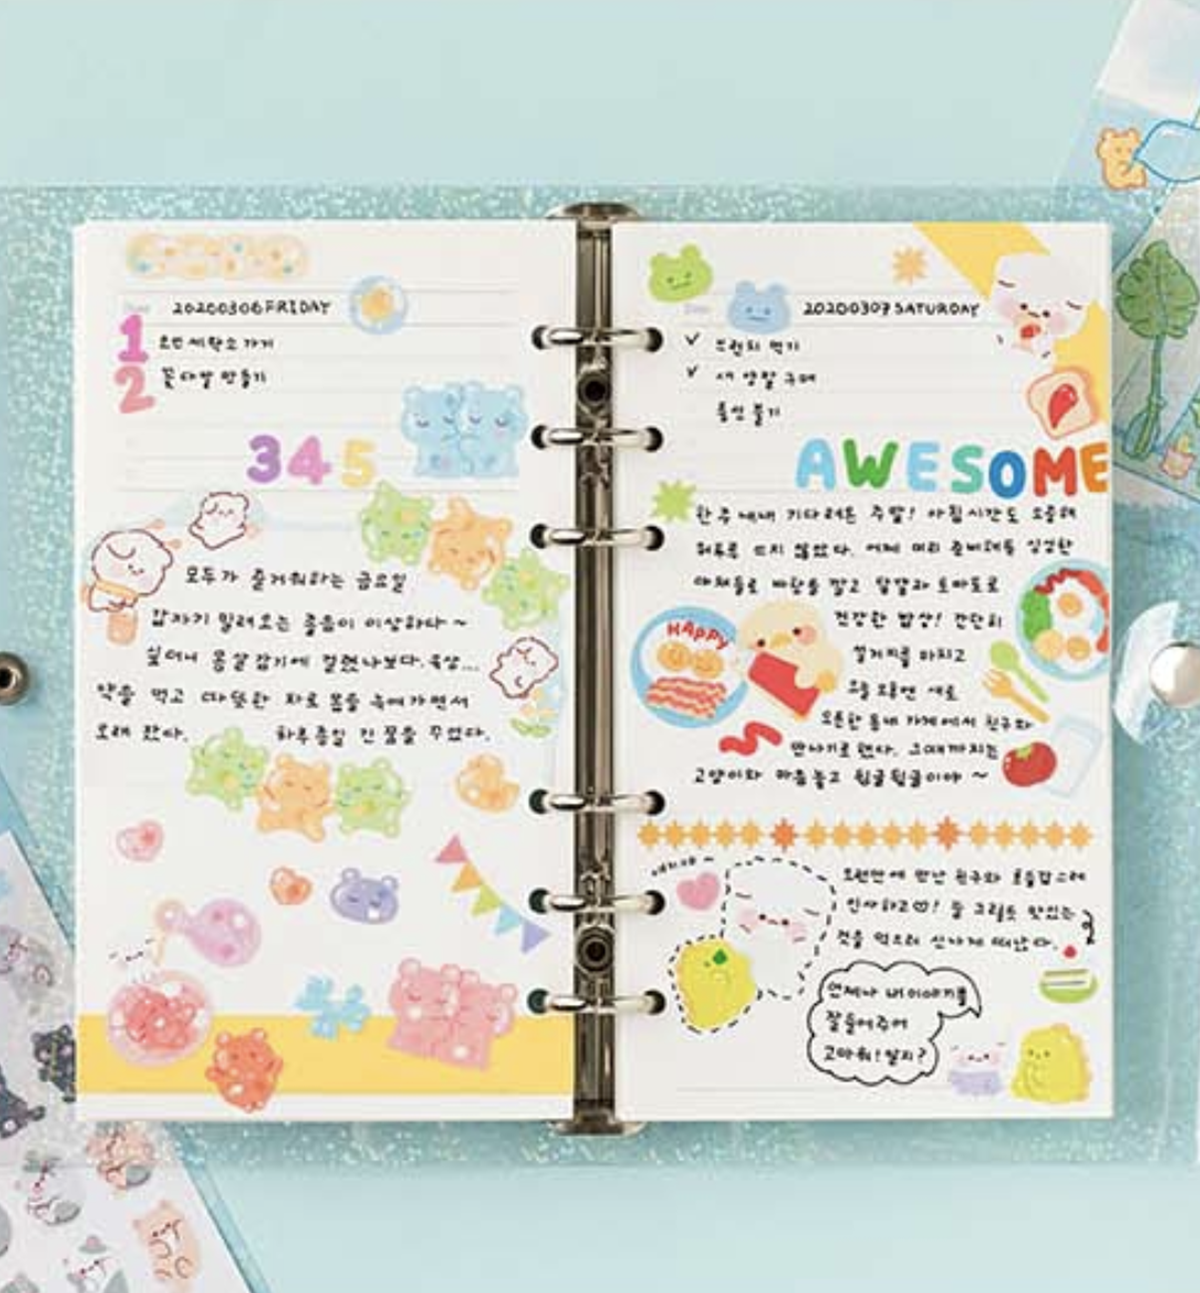 20200306 FRIDAY
1 오전 세탁소 가기
2 꽃다발 만들기
3 4 5
모두가 즐거워하는 금요일
갑자기 밀려오는 졸음이 이상하다~
싶더니 몸살감기에 걸렸나보다. 속상...
약을 먹고 따뜻한 차로 몸을 녹여가면서
오래 잤다. 하루종일 긴 꿈을 꾸었다.
20200307 SATURDAY
✓ 브런치 먹기
✓ 새 양말 구매
풍선 불기
AWESOME
한 주 내내 기다려온 주말! 아침시간도
허투루 쓰지 않았다. 어제 미리 준비해둔 싱싱한
야채들로 바탕을 깔고 달걀과 토마토로
건강한 밥상! 간단히
HAPPY
설거지를 마치고
오늘 오후엔 새로
오픈한 동네 가게에서 친구와
만나기로 했다. 그때까지는
고양이와 마음놓고 뒹굴뒹굴이야~
오랜만에 만난 친구와
인사하고! 둘 그림도 맛있는
것을 먹으러 신나게 떠났다.
언제나 내 이야기를
잘 들어주어
고마워! 알지?